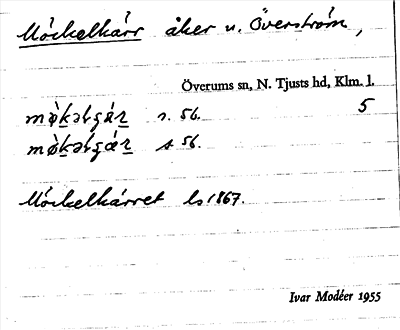 Möckelkärr åker u. Överström,
Överums sn, N. Tjusts hd, Klm. l.
5
r. 56.
s 56.
Möckelkärret ls 1867.
Ivar Modéer 1955